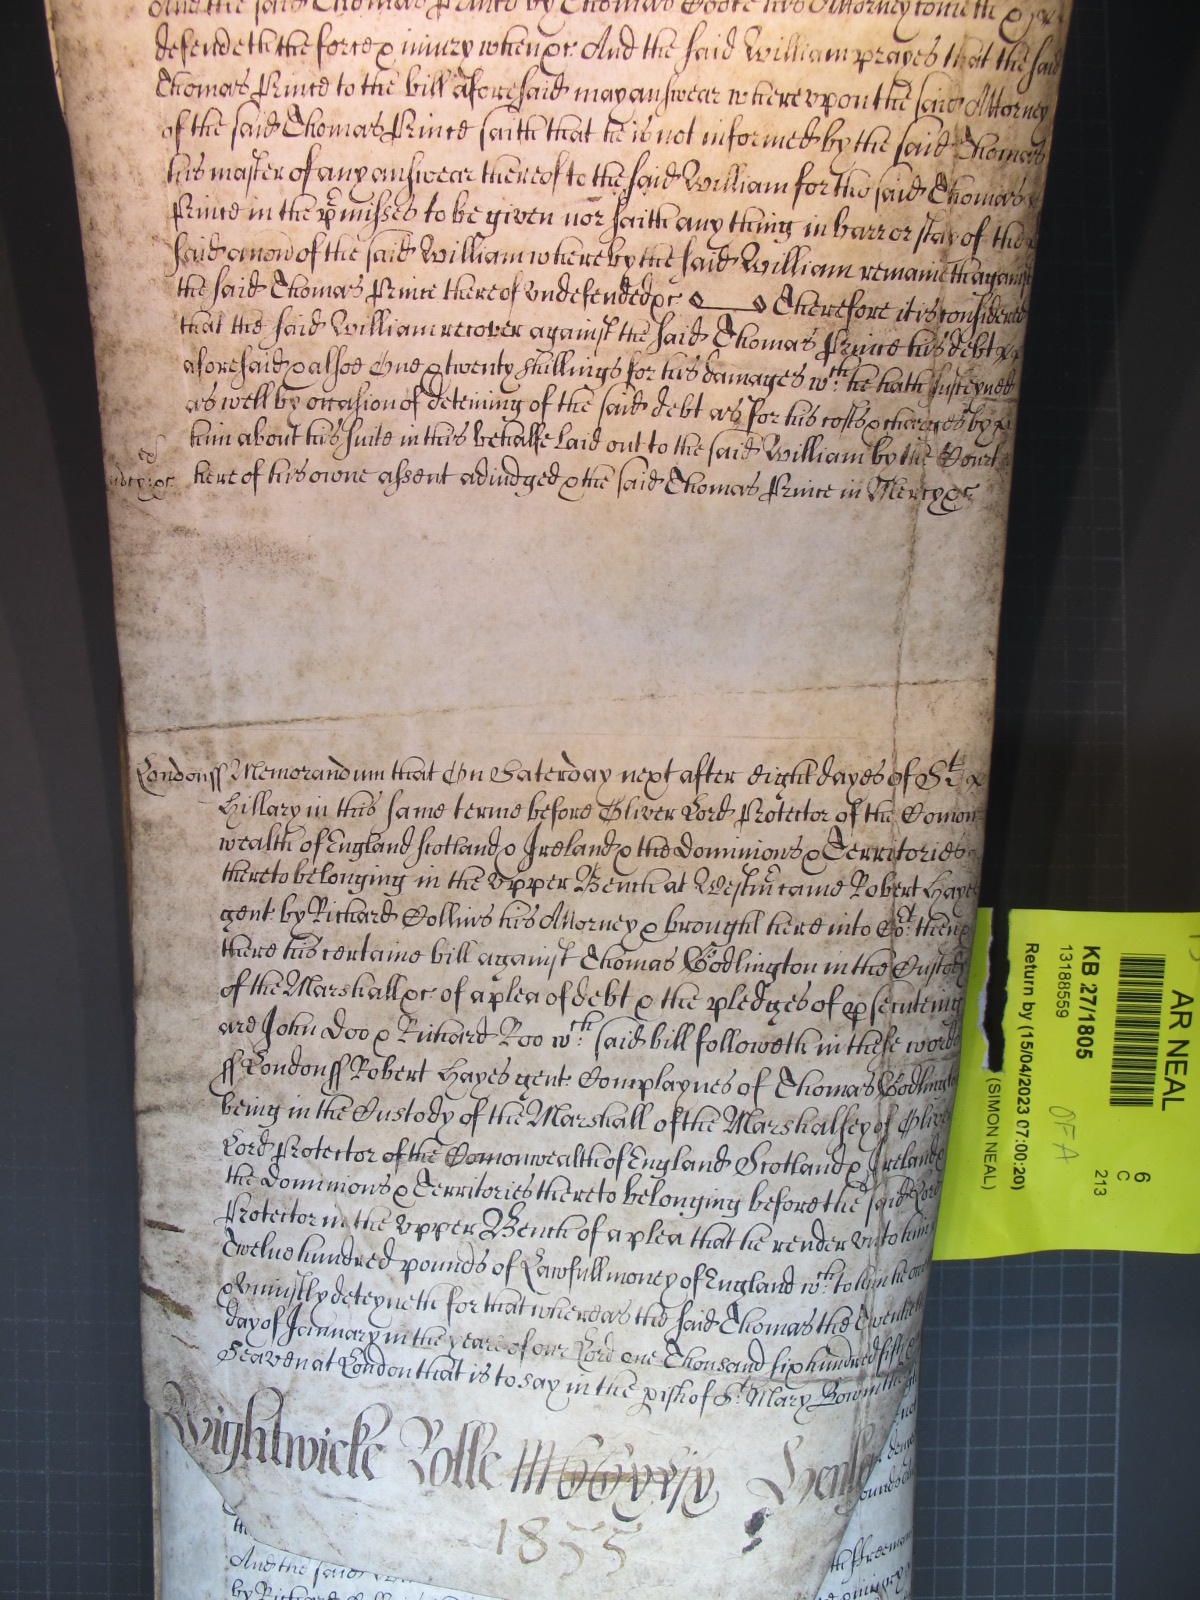 And the said Thomas Prince by Thomas Goore his Attorney cometh &
defendeth the force & iniury when &c And the said William prayes that the said
Thomas Prince to the bill aforesaid may answear wherevpon the said Attorney
of the said Thomas Prince saith that he is not informed by the said Thomas
his master of any answear thereof to the said William for the said Thomas
Prince in the p'misses to be given nor saith any thing in barr or stay of the
said accon of the said William whereby the said William remaineth against
the said Thomas Prince thereof vndefended &c Therefore it is considered
that the said William recover against the said Thomas Prince his debt
aforesaid & alsoe One & twenty shillings for his damages wch he hath susteyned
as well by occasion of deteining of the said debt as for his costs & charges by
him about his suite in this behalfe laid out to the said William by the Court
here of his owne assent adiudged & the said Thomas Prince in Mercy &c
London ss Memorandum that On Saterday next after eight dayes of St
Hillary in this same terme before Oliver Lord Protector of the Comon
wealth of England Scotland & Ireland & the Dominions & Territories
thereto belonging in the Vpper Bench at Westm came Robert Hayes
gent by Richard Collins his Attorney & brought here into Cot then &
there his certaine bill against Thomas Godlington in the Custody
of the Marshall &c of a plea of debt & the pledges of p'secuteing
are John Doo & Richard Roo wch said bill followeth in these words
ss London ss Robert Hayes gent Complaynes of Thomas Godlington
being in the Custody of the Marshall of the Marshalsey of Oliver
Lord Protector of the Comonwealth of England Scotland & Ireland &
the Dominions & Territories thereto belonging before the said Lord
Protector in the Vpper Bench of a plea that he render vnto him
Twelve hundred pounds of Lawfull money of England wch to him he
& vniustly deteyneth for that whereas the said Thomas the Twentieth
day of January in the yeare of our Lord one Thousand six hundred fifty
Seaven at London that is to say in the p'ish of St Mary Bow in the
Wightwicke Rolle
1855
And the said
by Richard
AR NEAL
KB 27/1805
13188559
Return by (15/04/2023 07:00:20)
(SIMON NEAL)
6
C
213
OFA